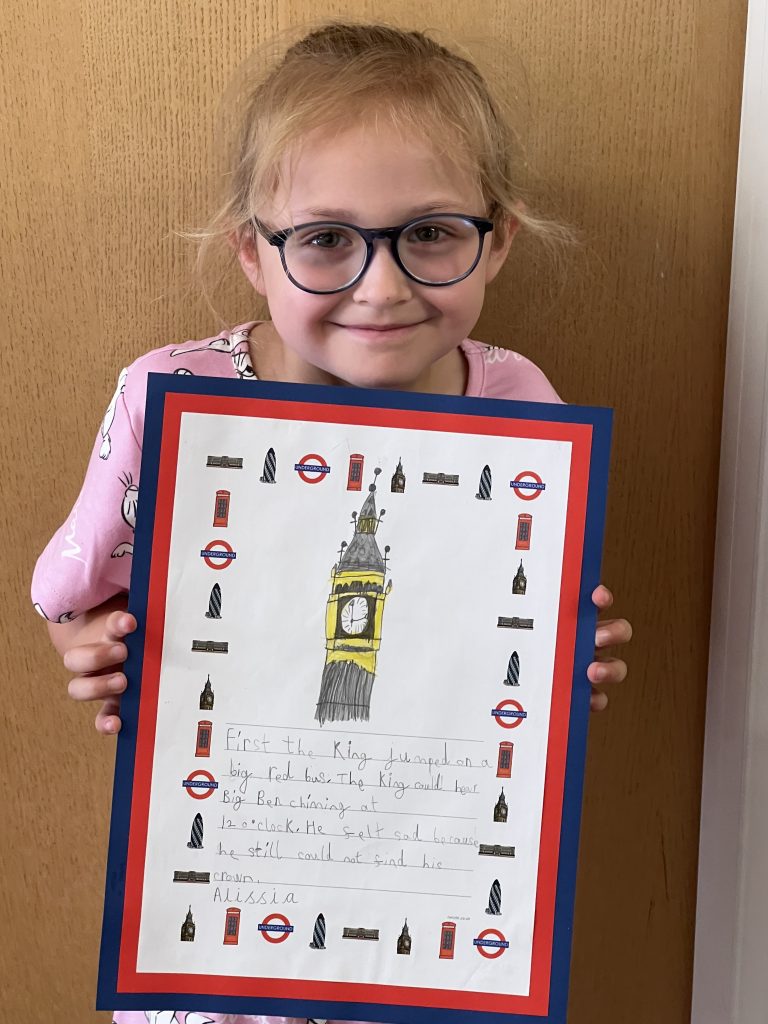 UNDERGROUND
UNDERGROUND
UNDERGROUND
First the King jumped on a
big red bus. The King could hear
Big Ben chiming at
12 o'clock. He felt sad because
he still could not find his
crown.
Alissia
UNDERGROUND
UNDERGROUND
UNDERGROUND
UNDERGROUND